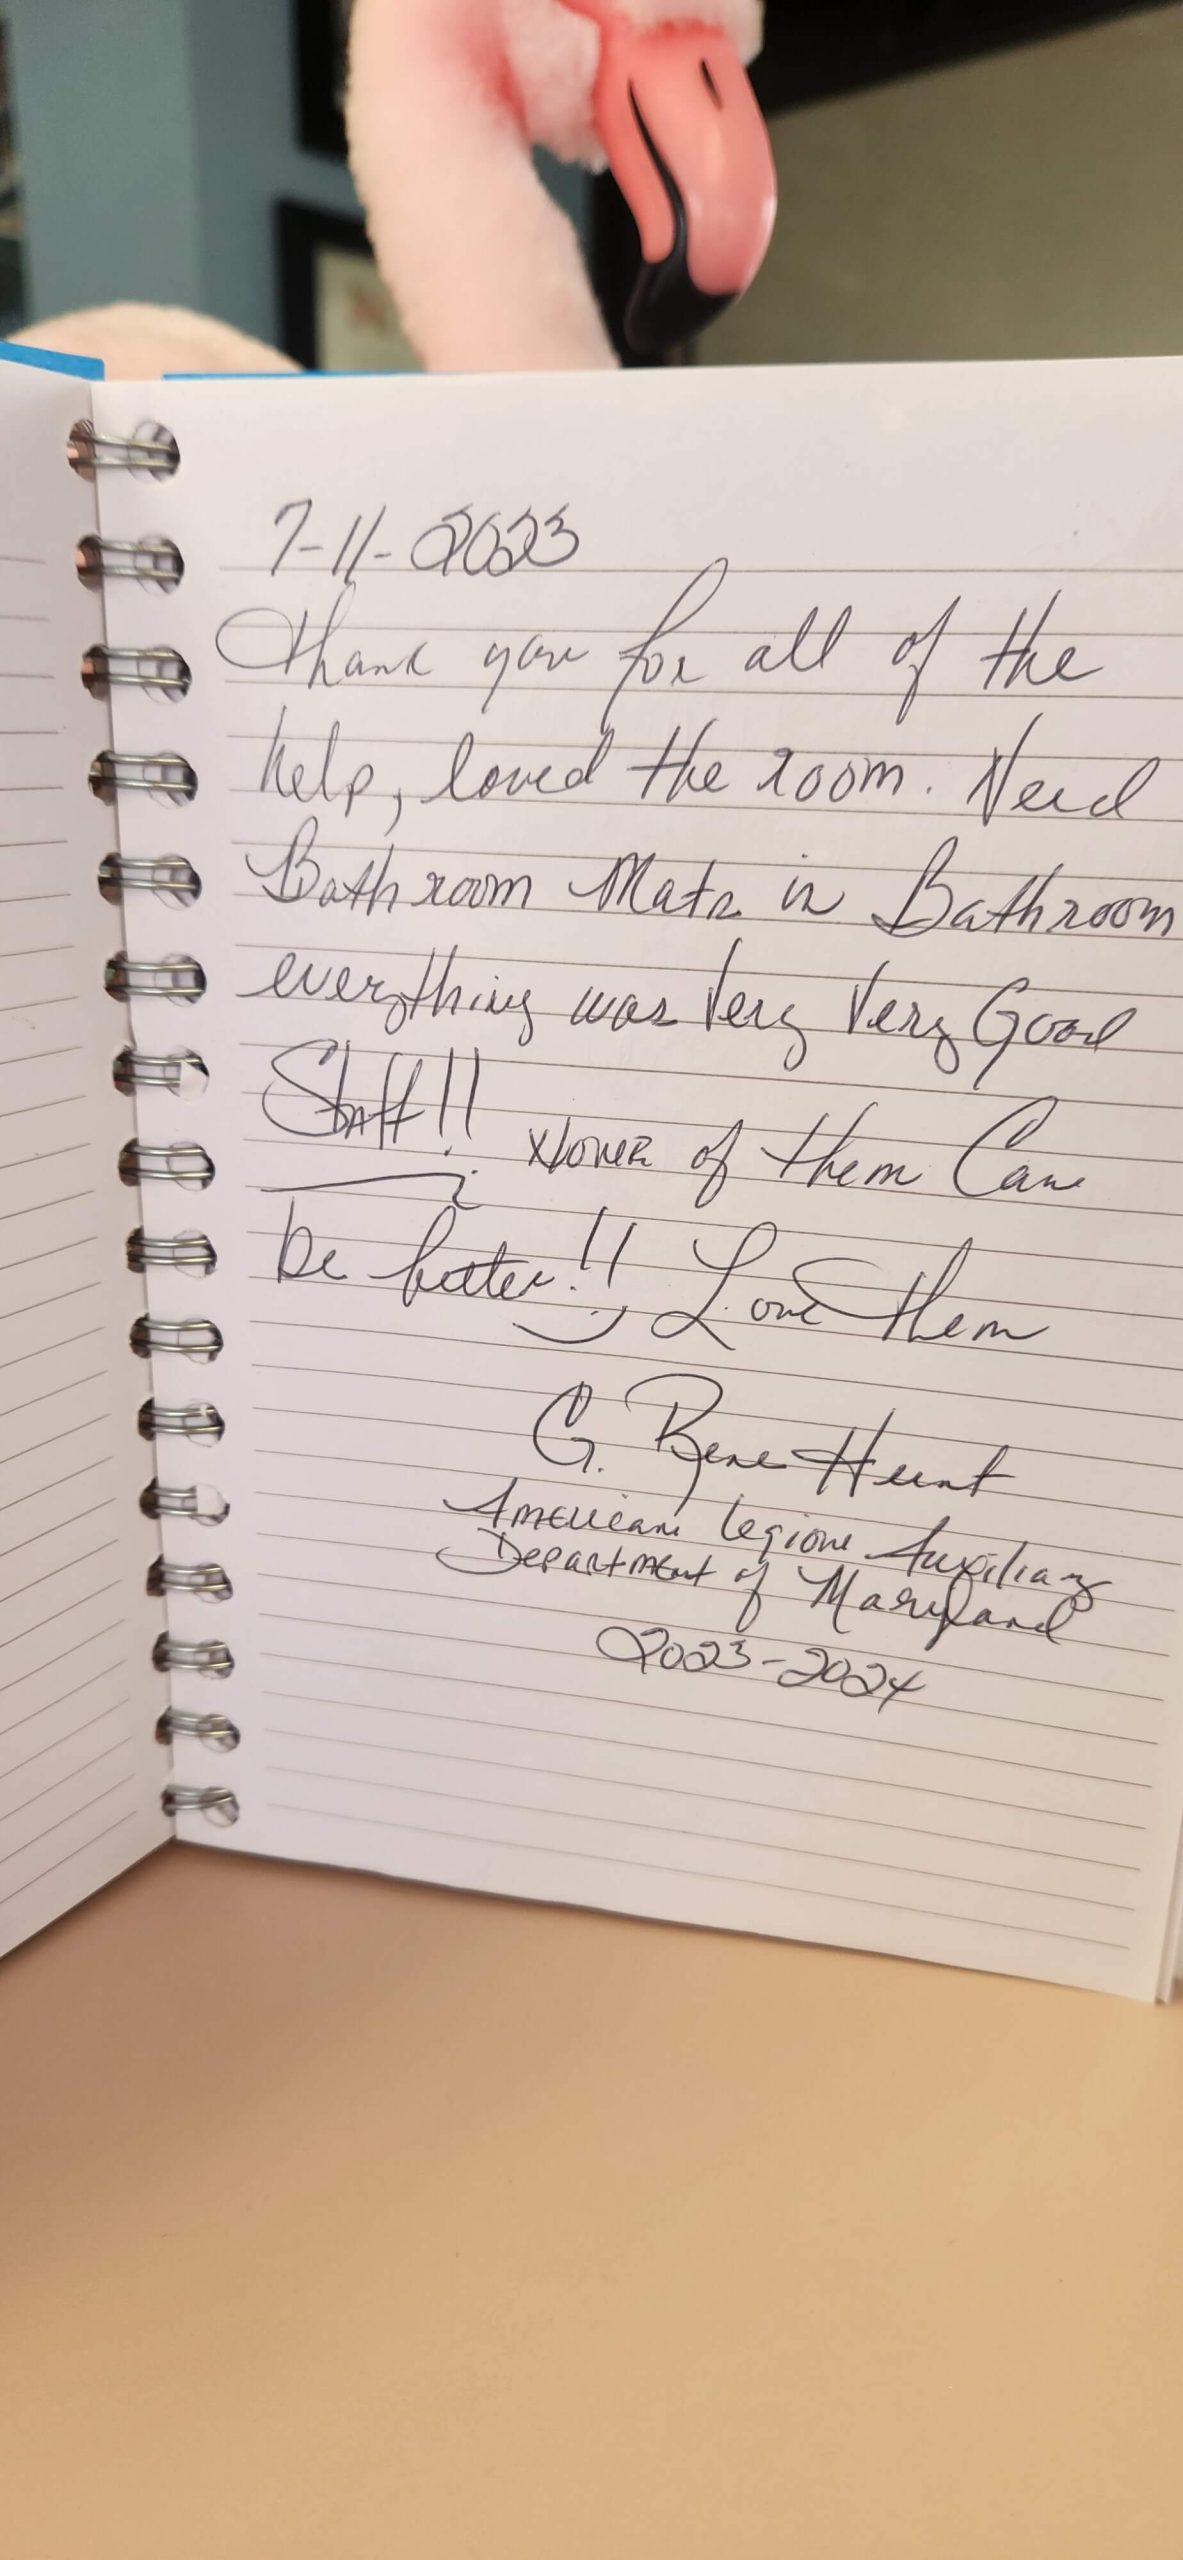 7-11-2023
Thank you for all of the
help, loved the room. Need
Bathroom Mats in Bathroom
everything was Very Very Good
Staff!! None of them Can
be better!! Love them
G. Hunt
American Legion Auxiliary
Department of Maryland
2023-2024